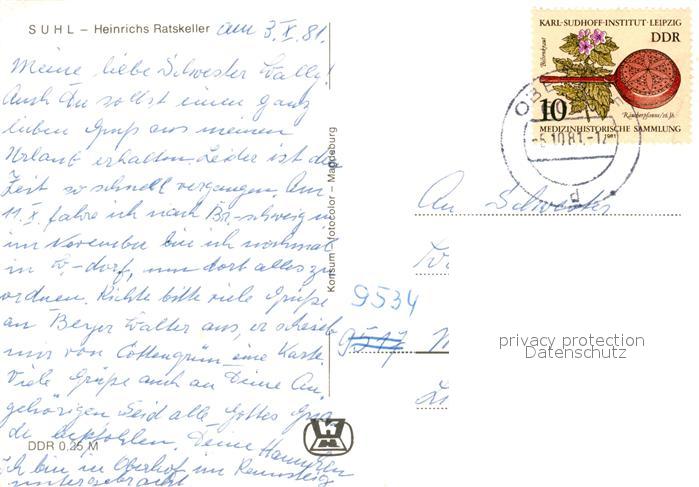 SUHL – Heinrichs Ratskeller am 3. X. 81.
Meine liebe Schwester Wally!
Auch Du sollst einen ganz
lieben Gruß aus meinem
Urlaub erhalten. Leider ist die
Zeit so schnell vergangen. Am
11. X. fahre ich nach Br.-schweig u.
im November bin ich nochmal
in -dorf, um dort alles zu
ordnen. Richte bitte viele Grüße
an Beyer Walter aus, er schrieb
mir von Cottengrün eine Karte.
Viele Grüße auch an Deine An-
gehörigen. Seid alle Gottes Gna-
de empfohlen. Deine
Ich bin in Oberhof im Rennsteig
untergebracht
DDR 0,25 M
Konsum fotocolor – Magdeburg
KARL-SUDHOFF-INSTITUT · LEIPZIG
DDR
Bilsenkraut
10
Räucherpfanne/16. Jh.
MEDIZINHISTORISCHE SAMMLUNG
1981
OBE
-5.10.81.-12
d
An Schwester
9534
9517
privacy protection
Datenschutz